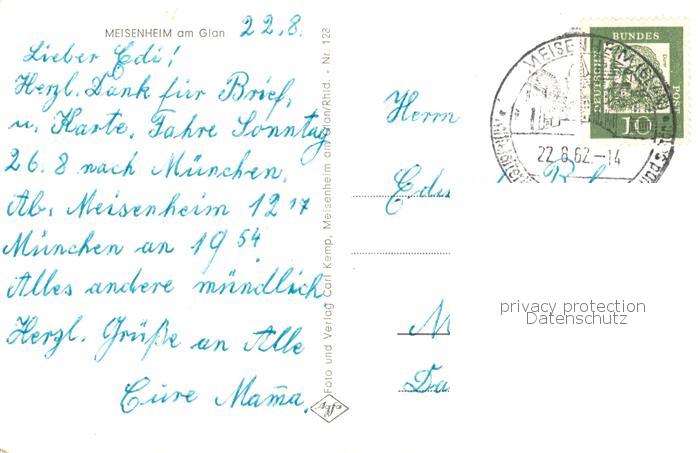 MEISENHEIM am Glan
22.8.
Lieber Edi!
Herzl. Dank für Brief,
u. Karte. Fahre Sonntag
26.8 nach München.
Ab. Meisenheim 12 17
München an 19 54
Alles andere mündlich
Herzl. Grüße an Alle
Eure Mama.
Foto und Verlag Carl Kemp, Meisenheim am Glan/Rhld. - Nr. 128
Herrn
DEUTSCHE BUNDES POST
10
MEISENHEIM (GLAN)
22.8.62.-14
privacy protection
Datenschutz